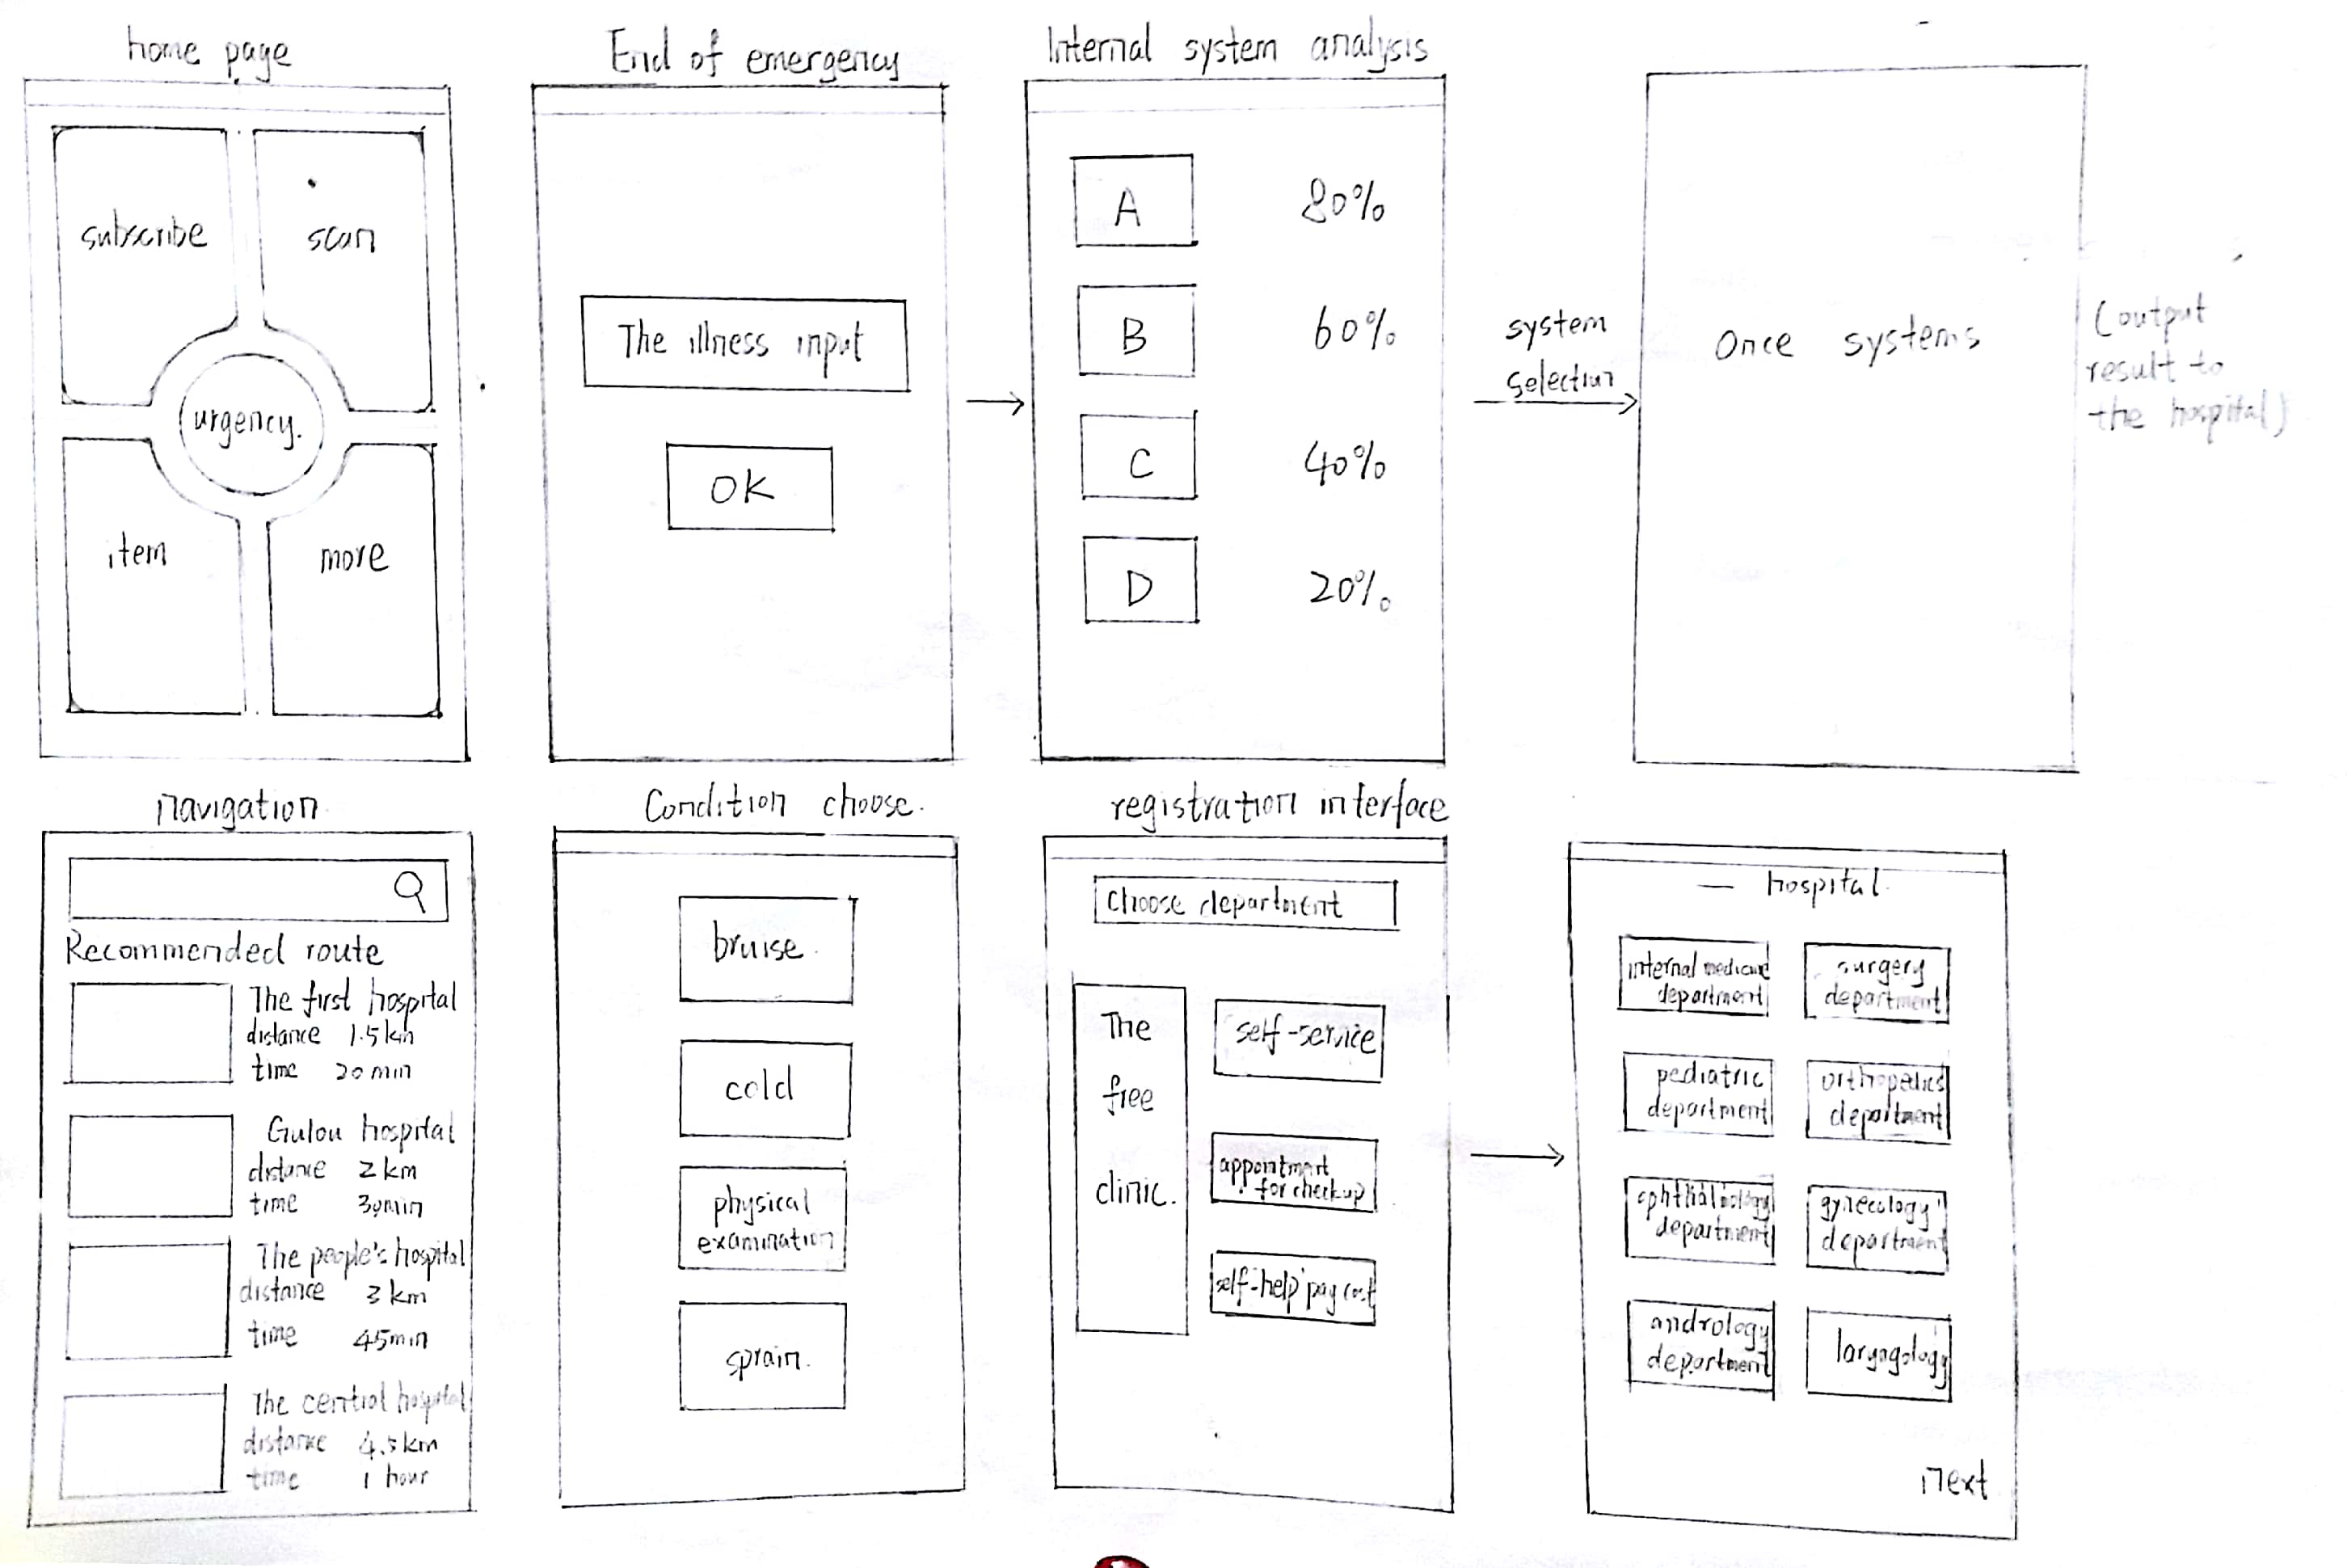 home page
subscribe
scan
urgency.
item
more
End of emergency
The illness input
OK
Internal system analysis
A 80%
B 60%
C 40%
D 20%
system
selection
Once systems
(output
result to
the hospital)
navigation
Recommended route
The first hospital
distance 1.5km
time 20min
Gulou hospital
distance 2km
time 30min
The people's hospital
distance 3km
time 45min
The central hospital
distance 4.5km
time 1 hour
Condition choose.
bruise.
cold
physical
examination
sprain.
registration interface
choose department
The
free
clinic.
self-service
appointment
for checkup
self-help pay cost
— hospital.
internal medicine
department
surgery
department
pediatric
department
orthopedics
department
ophthalmology
department
gynecology
department
andrology
department
laryngology
next